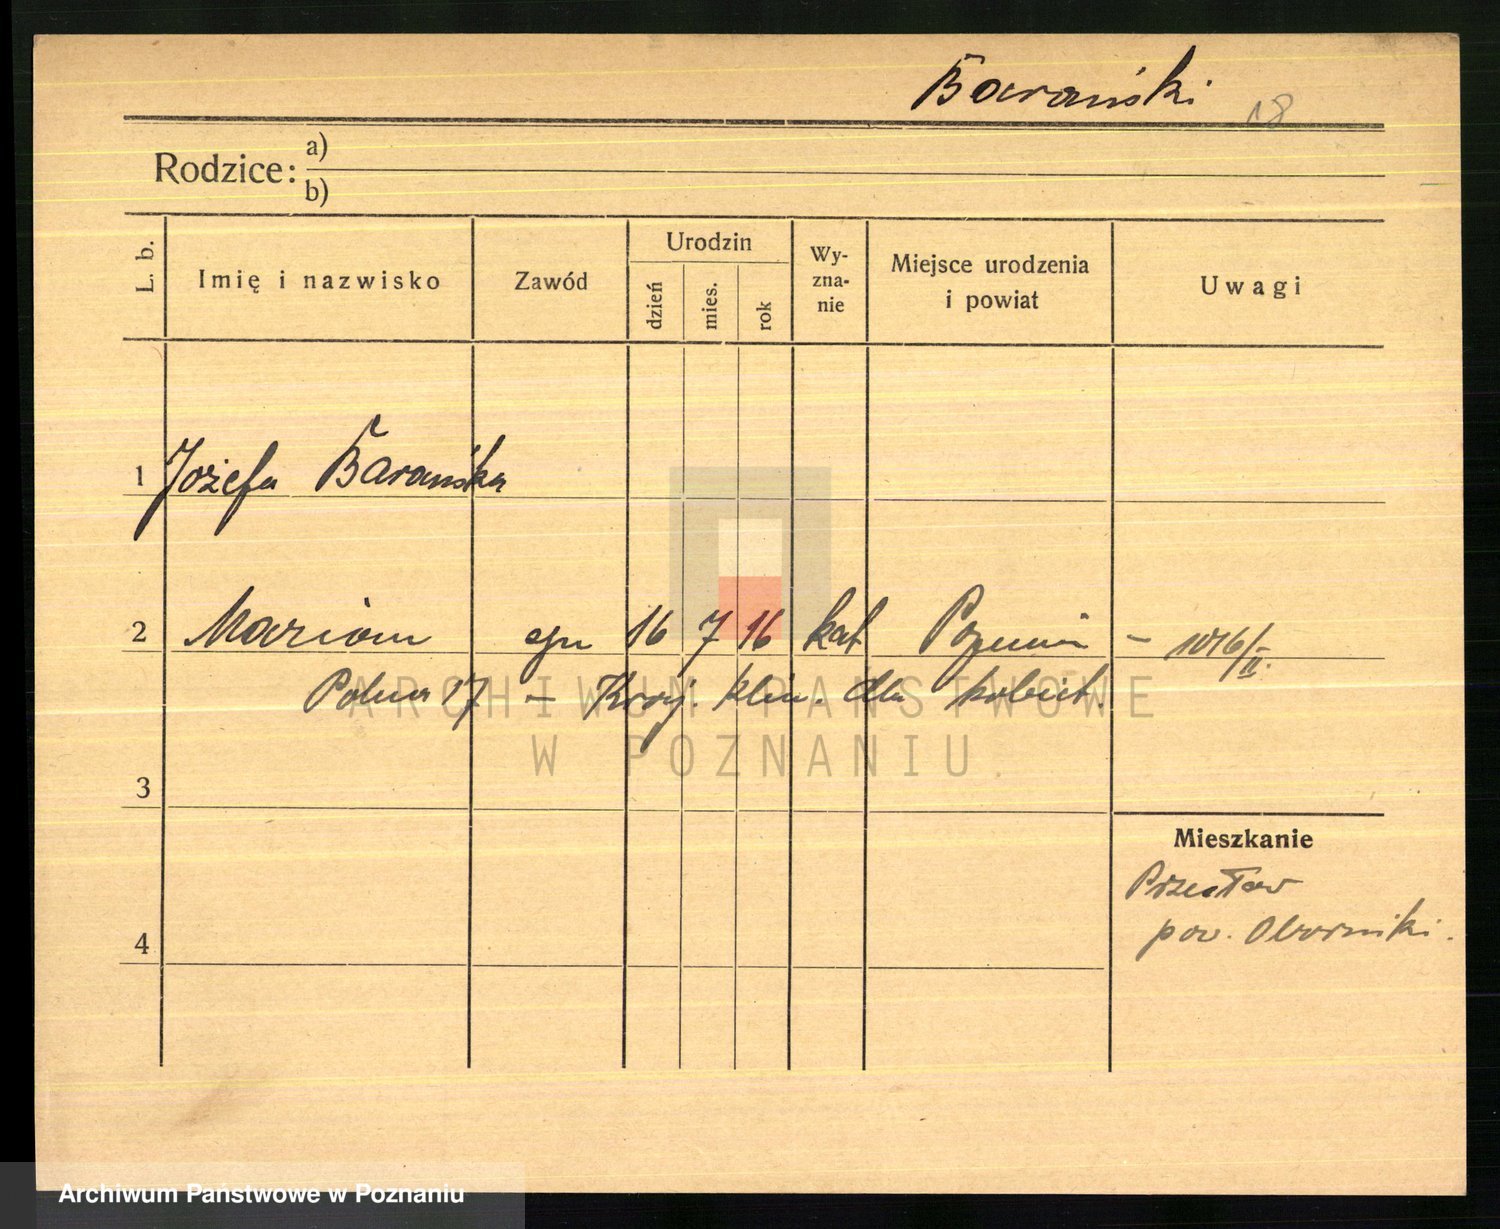 Barański 18
Rodzice: a)
b)
L. b. Imię i nazwisko Zawód Urodzin dzień mies. rok Wy-zna-nie Miejsce urodzenia i powiat Uwagi
1 Józefa Barańska
2 Marian syn 16 7 16 kat Poznań – 1016/II.
Polna 17 – Kraj. klin. dla kobiet.
ARCHIWUM PAŃSTWOWE
W POZNANIU
3
Mieszkanie
Przecław
4
pow. Oborniki.
Archiwum Państwowe w Poznaniu